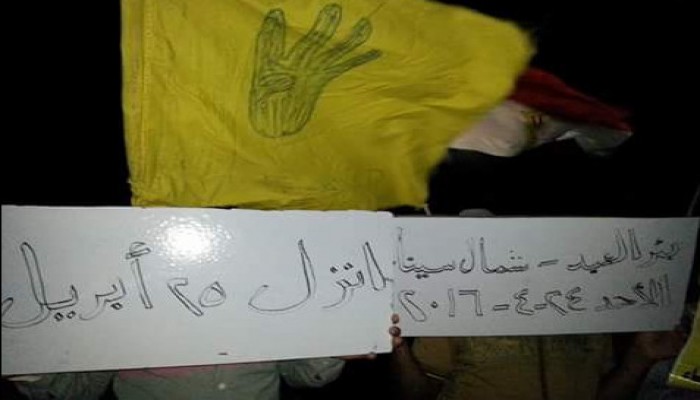 بئر العبد - شمال سينا
الأحد ٢٤-٤-٢٠١٦
انزل ٢٥ أبريل